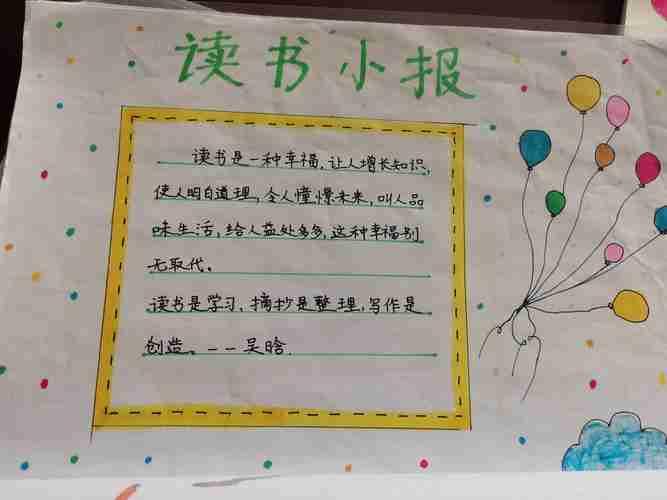 读书小报
读书是一种幸福,让人增长知识,
使人明白道理,令人憧憬未来,叫人品
味生活,给人益处多多,这种幸福别
无取代。
读书是学习,摘抄是整理,写作是
创造。——吴晗.